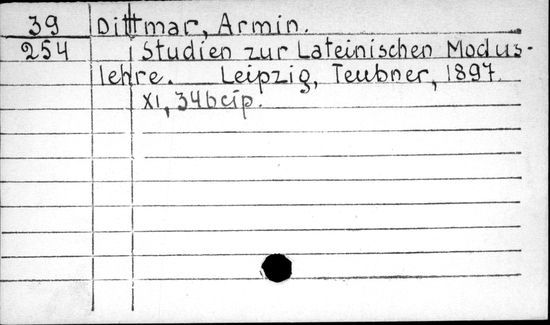 39 Dittmar, Armin.
254 Studien zur Lateinischen Modus-
lehre. Leipzig, Teubner, 1897.
XI, 346 cíp.